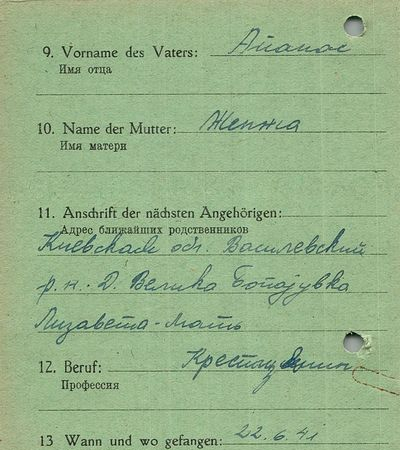 9. Vorname des Vaters:
Имя отца
10. Name der Mutter:
Имя матери
11. Anschrift der nächsten Angehörigen:
Адрес ближайших родственников
Киевская обл. Василевский
р.н. Д. Велика
Лизавета-мать
12. Beruf:
Профессия
13 Wann und wo gefangen: 22.6.41